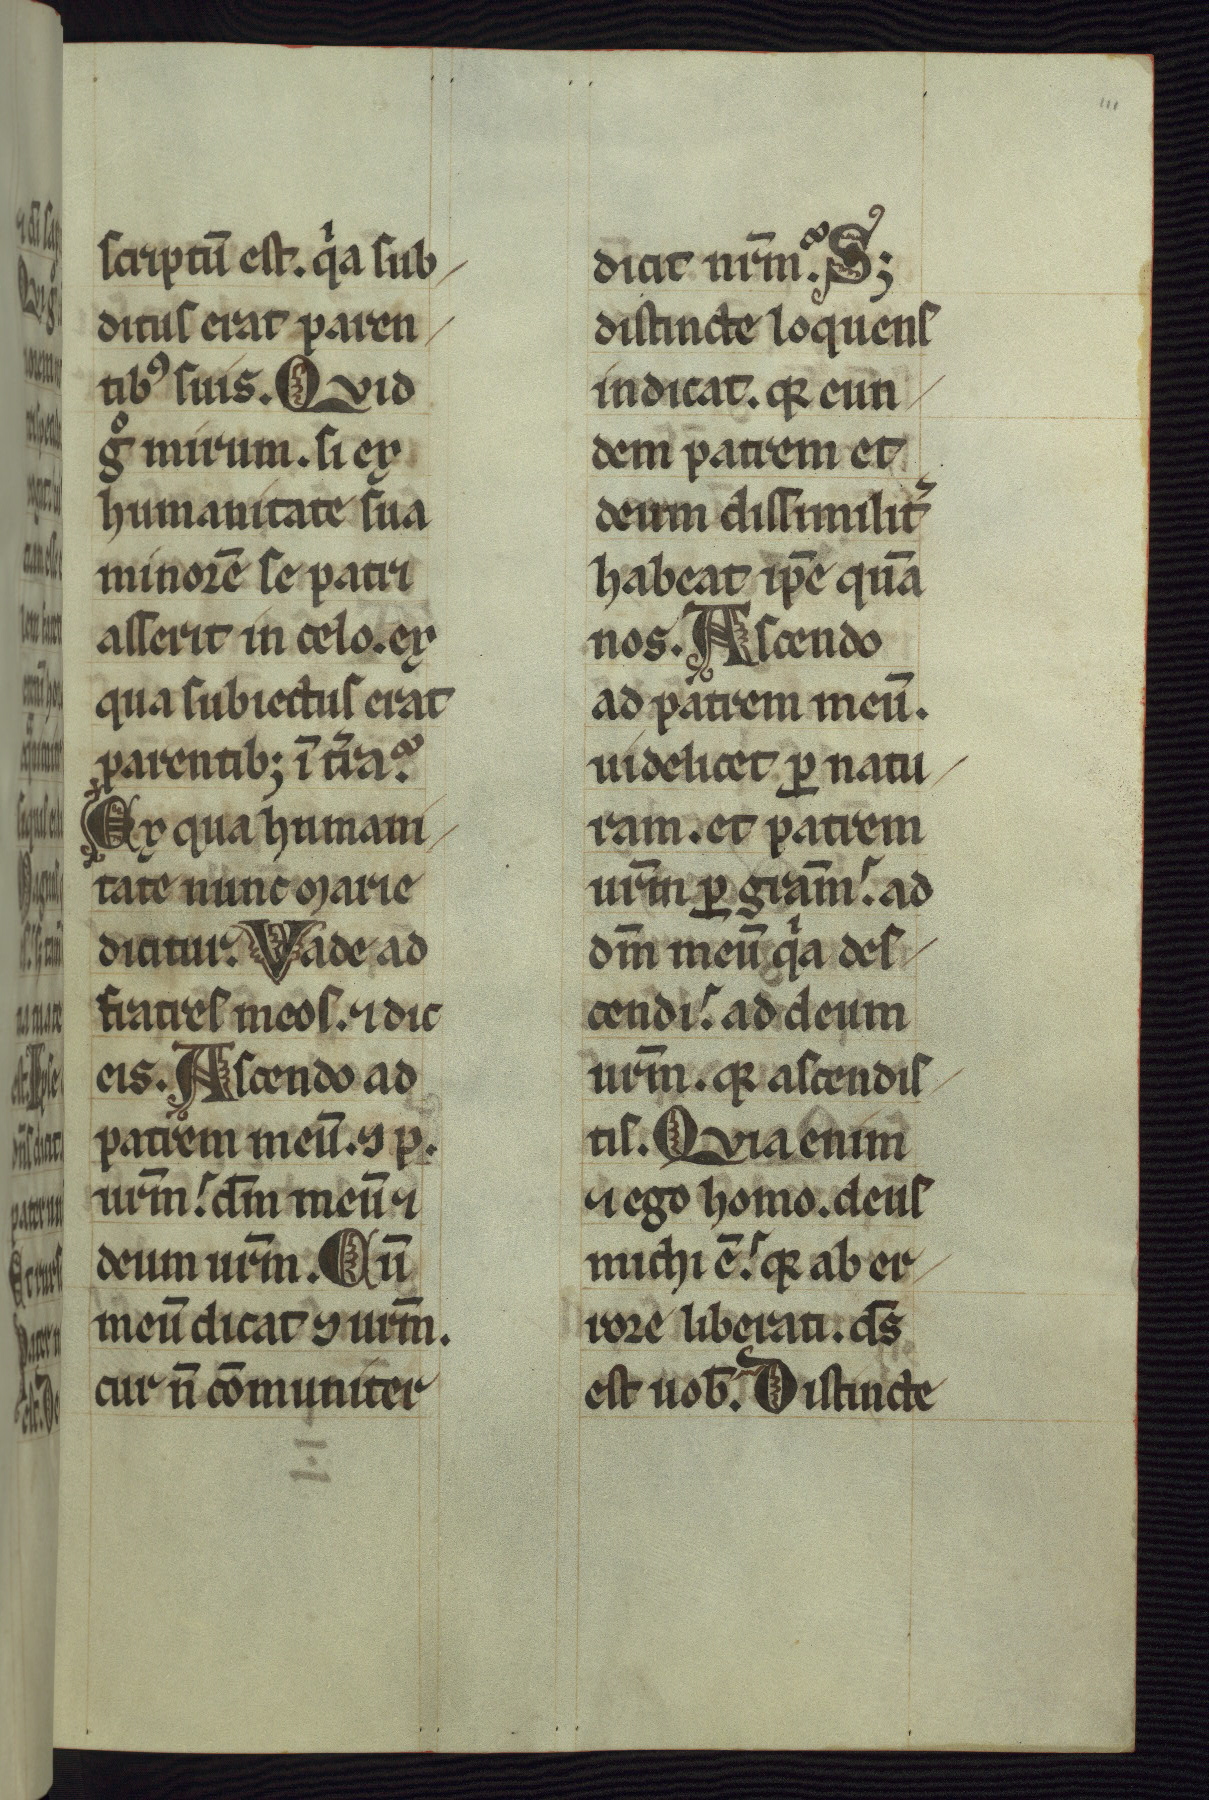 111
scriptū est. qͥa sub
ditus erat paren
tibꝰ suis. Qvid
gͦ mirum. si ex
humanitate sua
minorē se patri
asserit in celo. ex
qua subiectus erat
parentib; ī tr̄a.
Ex qua humani
tate nunc Marie
dicitur. Vade ad
fratres meos. ⁊ dic
eis. Ascendo ad
patrem meū. ⁊ p.
ur̄m. dm̄ meū ⁊
deum ur̄m. Cū
meū dicat ⁊ ur̄m.
cur n̄ cōmuniter
dicit nr̄m. S;
distincte loquens
indicat. qꝛ eun
dem patrem et
deum dissimilit᷑
habeat ip̄e quā
nos. Ascendo
ad patrem meū.
uidelicet ꝑ natu
ram. et patrem
ur̄m ꝑ grām. ad
dm̄ meū qͥa des
cendi. ad deum
ur̄m. qꝛ ascendis
tis. Qvia enim
⁊ ego homo. deus
michi ē. qꝛ ab er
rore liberati. ds̄
est uob̄. Distincte